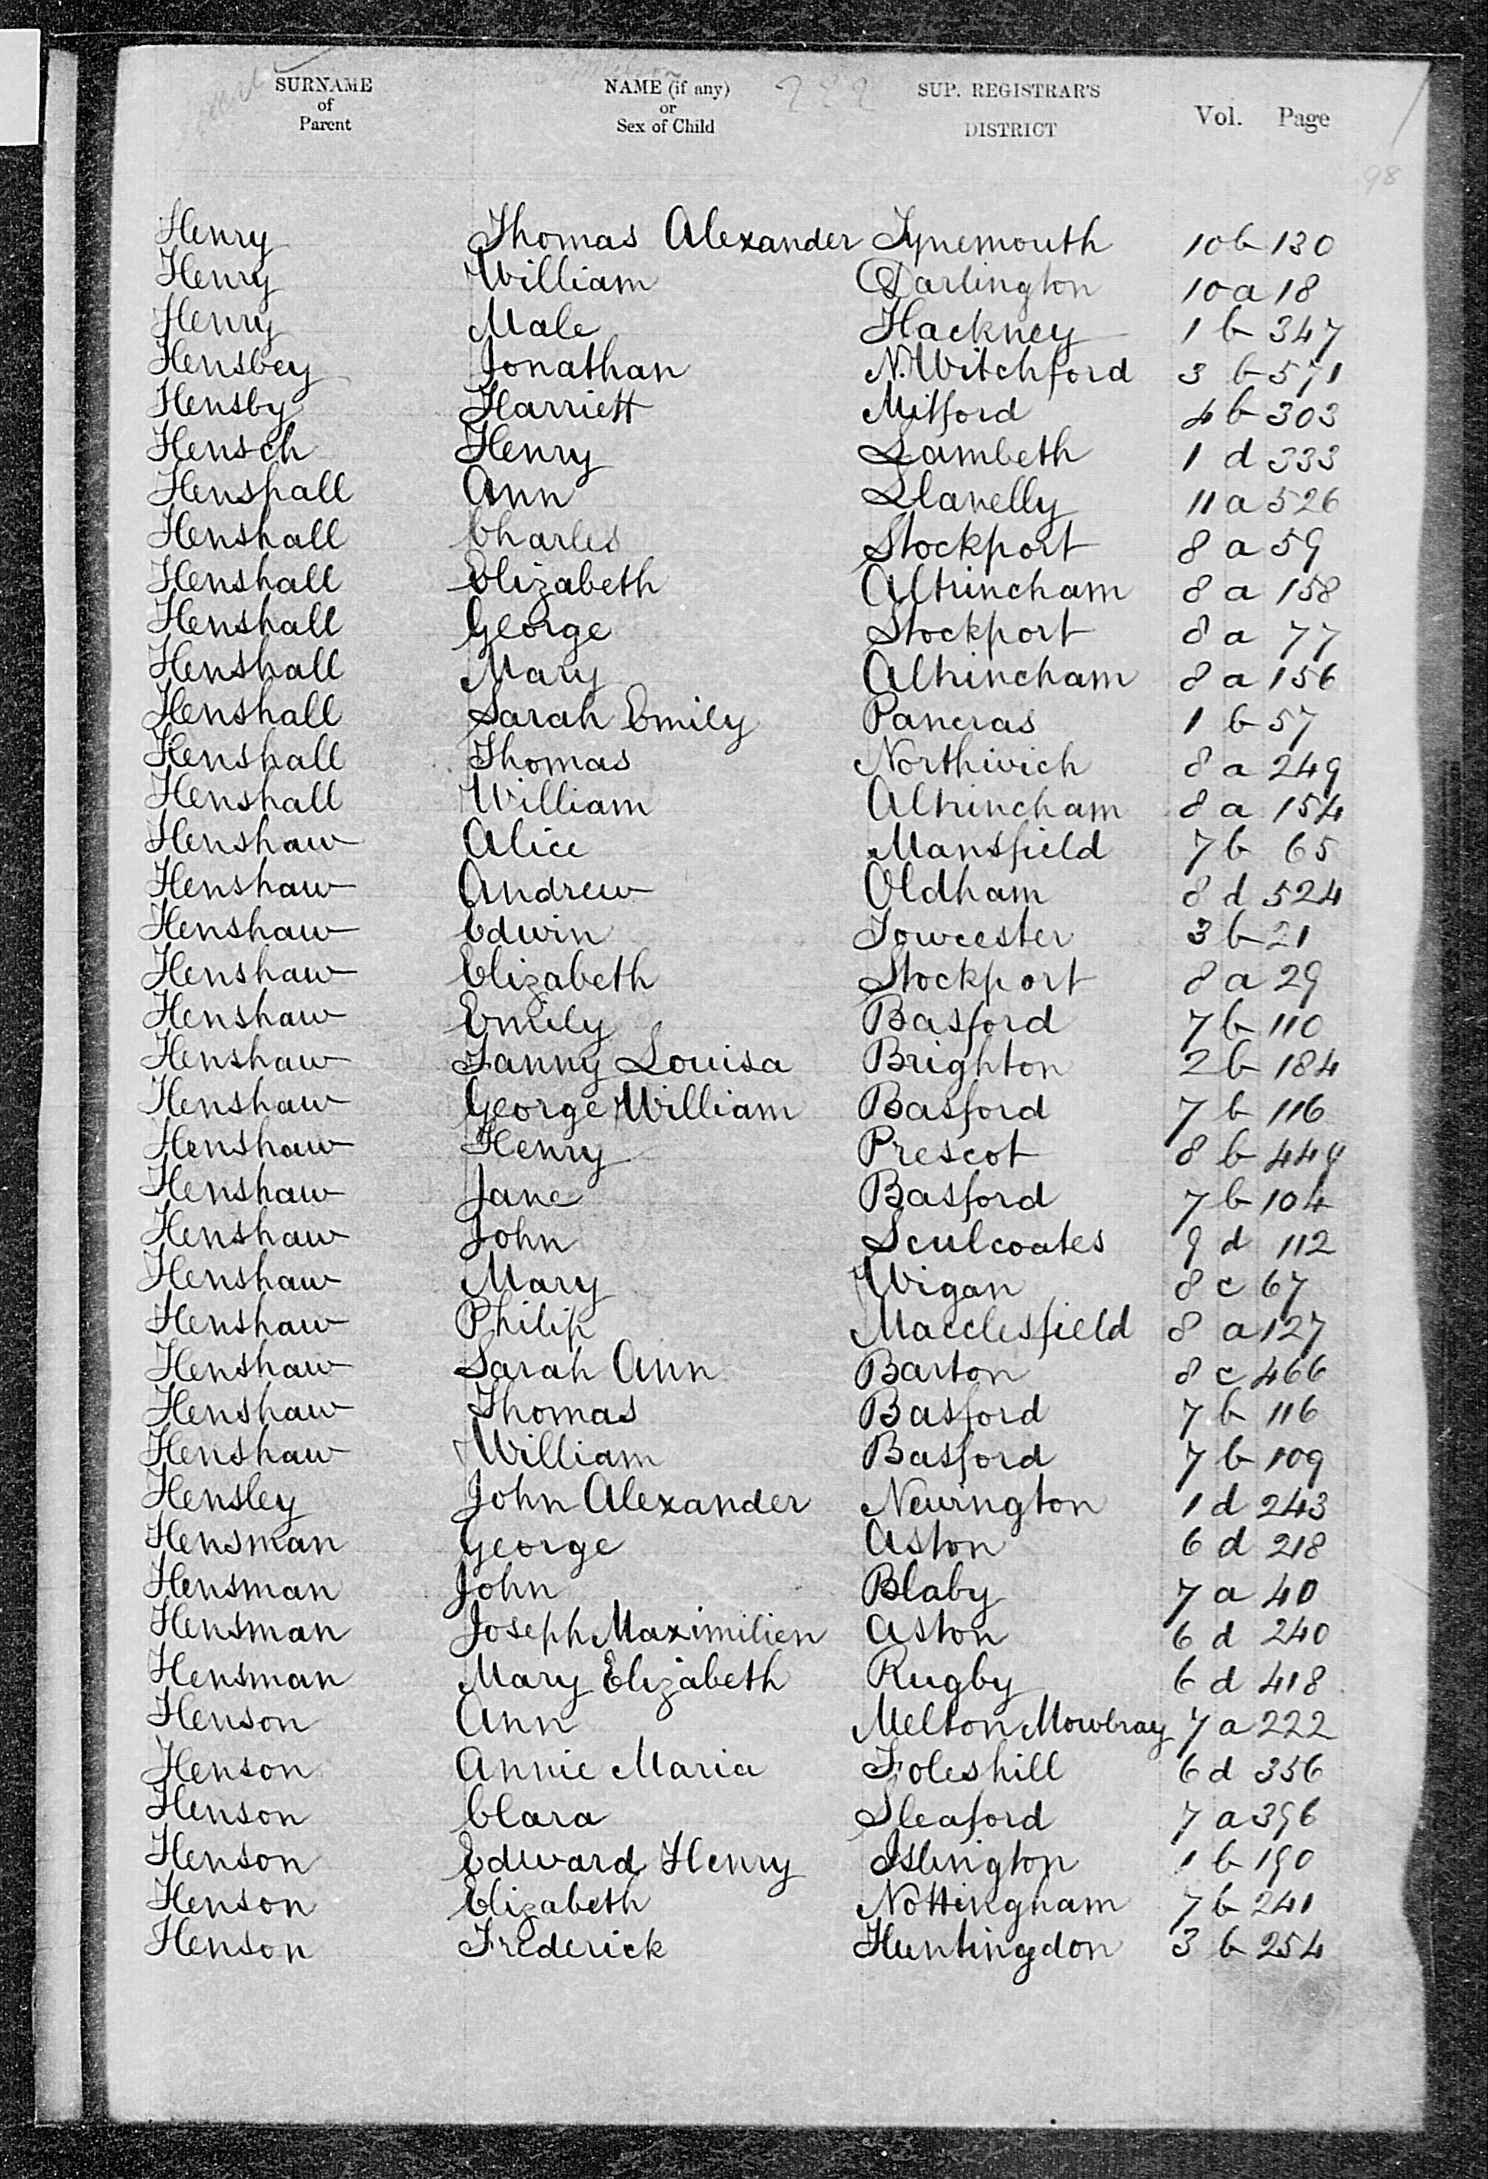 SURNAME of Parent NAME (if any) or Sex of Child SUP. REGISTRAR'S DISTRICT Vol. Page
98
Henry Thomas Alexander Tynemouth 10b 130
Henry William Darlington 10a 18
Henry Male Hackney 1b 347
Hensbey Jonathan N. Witchford 3b 571
Hensby Harriett Mitford 4b 303
Hensch Henry Lambeth 1d 333
Henshall Ann Llanelly 11a 526
Henshall Charles Stockport 8a 59
Henshall Elizabeth Altrincham 8a 158
Henshall George Stockport 8a 77
Henshall Mary Altrincham 8a 156
Henshall Sarah Emily Pancras 1b 57
Henshall Thomas Northwich 8a 249
Henshall William Altrincham 8a 154
Henshaw Alice Mansfield 7b 65
Henshaw Andrew Oldham 8d 524
Henshaw Edwin Towcester 3b 21
Henshaw Elizabeth Stockport 8a 29
Henshaw Emily Basford 7b 110
Henshaw Fanny Louisa Brighton 2b 184
Henshaw George William Basford 7b 116
Henshaw Henry Prescot 8b 449
Henshaw Jane Basford 7b 104
Henshaw John Sculcoates 9d 112
Henshaw Mary Wigan 8c 67
Henshaw Philip Macclesfield 8a 127
Henshaw Sarah Ann Barton 8c 466
Henshaw Thomas Basford 7b 116
Henshaw William Basford 7b 109
Hensley John Alexander Newington 1d 243
Hensman George Aston 6d 218
Hensman John Blaby 7a 40
Hensman Joseph Maximilien Aston 6d 240
Hensman Mary Elizabeth Rugby 6d 418
Henson Ann Melton Mowbray 7a 222
Henson Annie Maria Foleshill 6d 356
Henson Clara Sleaford 7a 396
Henson Edward Henry Islington 1b 190
Henson Elizabeth Nottingham 7b 241
Henson Frederick Huntingdon 3b 254